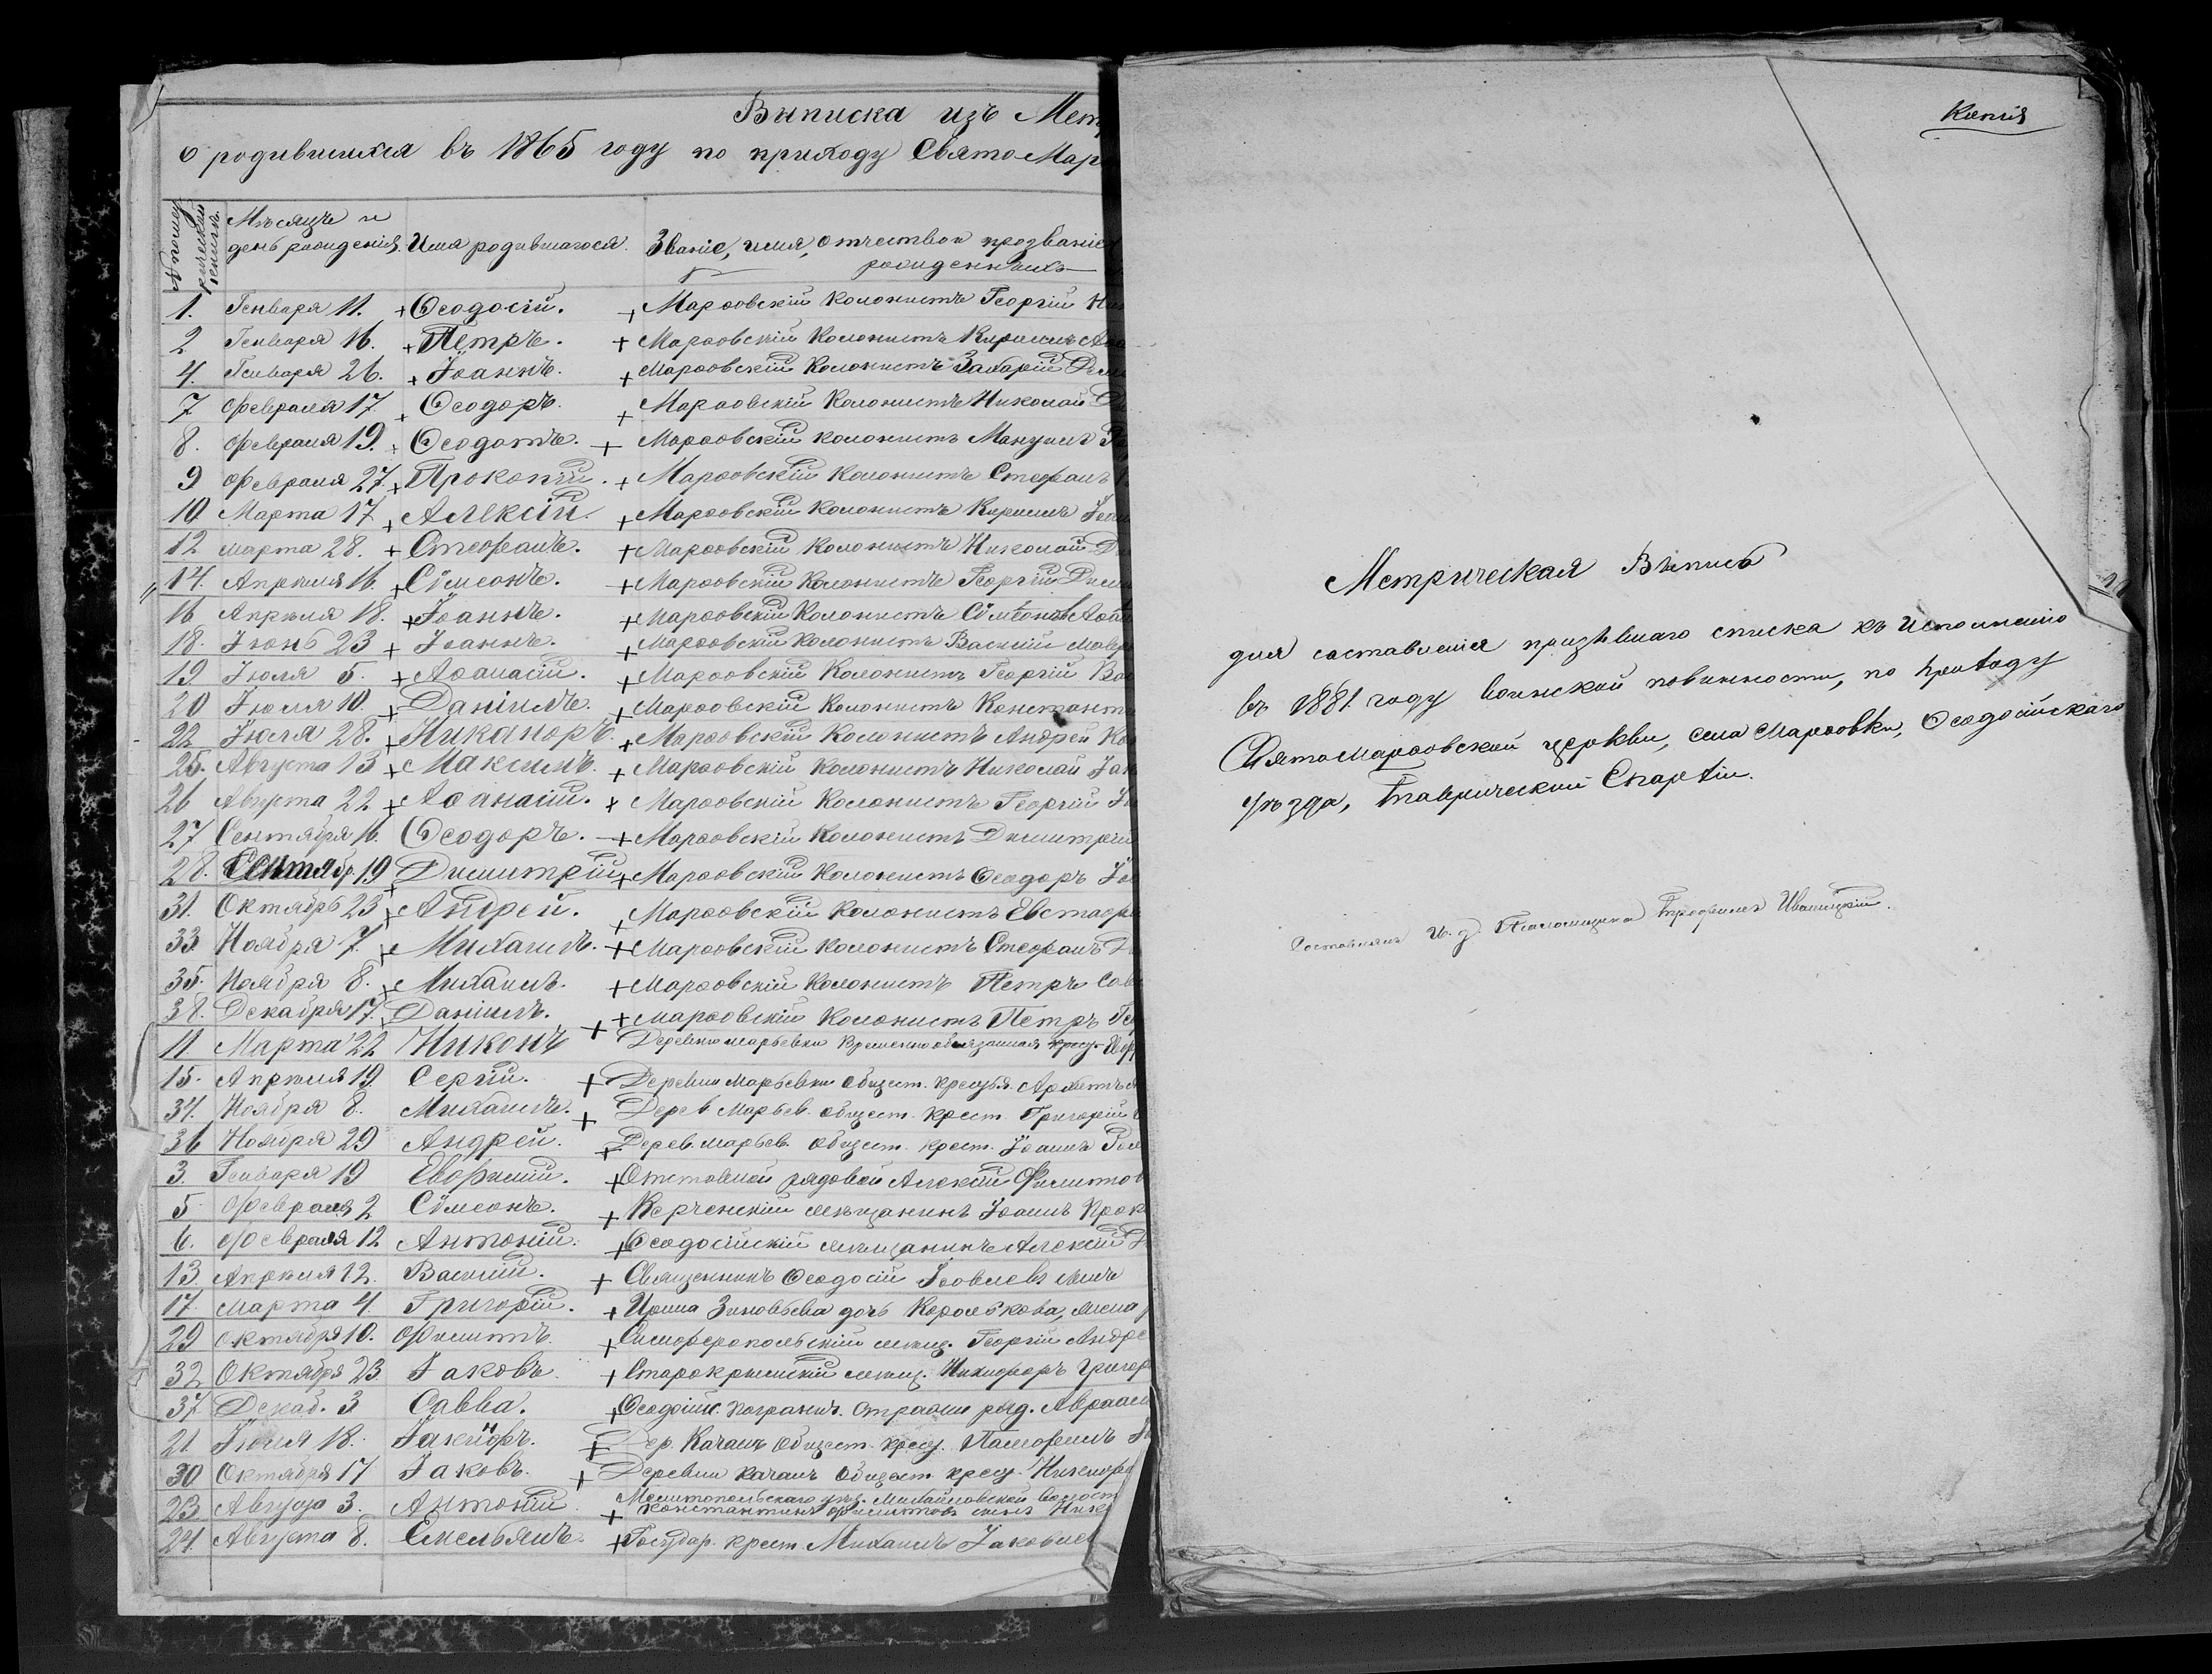 Выписка изъ Мет
о родившихся въ 1865 году по приходу Свято-Мар
№ по метрической книгѣ.
Мѣсяцъ и день рожденія.
Имя родившагося.
Званіе, имя, отчество и прозваніе
рожденныхъ
1. Генваря 11. + Ѳеодосій. + Марѳовскій колонистъ Георгій
2 Генваря 16. + Петръ. + Марѳовскій колонистъ Кириллъ
4. Генваря 26. + Іоаннъ. + Марѳовскій колонистъ Захарій
7 Февраля 17. + Ѳеодоръ. + Марѳовскій колонистъ Николай
8. Февраля 19. + Ѳеодотъ. + Марѳовскій колонистъ Мануилъ
9 Февраля 27. + Прокопій. + Марѳовскій колонистъ Стефанъ
10 Марта 17 + Алексій. + Марѳовскій колонистъ Кириллъ
12 Марта 28. + Стефанъ. + Марѳовскій колонистъ Николай
14. Апрѣля 16. + Сѵмеонъ. + Марѳовскій колонистъ Георгій
16 Апрѣля 18. + Іоаннъ. + Марѳовскій колонистъ Сѵмеонъ
18. Іюнь 23 + Іоаннъ. + Марѳовскій колонистъ Василій
19 Іюля 5. + Аѳанасій. + Марѳовскій колонистъ Георгій
20 Іюля 10. + Даніилъ. + Марѳовскій колонистъ Константи
22 Іюля 28. + Никаноръ. + Марѳовскій колонистъ Андрей
25. Августа 13 + Максимъ. + Марѳовскій колонистъ Николай
26 Августа 22 + Аѳанасій. + Марѳовскій колонистъ Георгій
27 Сентября 16. Ѳеодоръ. + Марѳовскій колонистъ Димитрій
28. Сентябр. 19 + Димитрій + Марѳовскій колонистъ Ѳеодоръ
31. Октябрь 23 + Андрей. + Марѳовскій колонистъ Евстафі
33 Ноября 7. + Михаилъ. + Марѳовскій колонистъ Стефанъ
35. Ноября 8. + Михаилъ. + Марѳовскій колонистъ Петръ
38. Декабря 17. + Даніилъ. + Марѳовскій колонистъ Петръ
11. Марта 22 Никонъ + Деревни Марьевки временно обязанная крес.
15. Апрѣля 19 Сергій. + Деревни Марьевки общест. крестья.
34. Ноября 8. Михаилъ. + Дерев. Марьев. общест. крест. Григорій
36 Ноября 29 Андрей. + Дерев. Марьев. общест. крест. Іоаннъ
3. Генваря 19 Евфимій. + Отставной рядовой Алексій Филиппов
5 Февраля 2 Сѵмеонъ. + Керченскій мѣщанинъ Іоаннъ Прок
6. Февраля 12 Антоній. + Ѳеодосійскій мѣщанинъ Алексій
13. Апрѣля 12. Василій. + Священникъ Ѳеодосій
17. Марта 4. Григорій. + Ирина Зиновьева дочь Королькова, жена
29 Октября 10. Филиппъ. + Симферопольскій мѣщ. Георгій Андре
32 Октября 23 Іаковъ. + Старокрымскій мѣщ. Никифоръ Григор
37. Декаб. 3 Савва. + Ѳеодосій. погранич. стражи ряд. Авраам
21 Іюля 18. Іакинфъ. + Дер. Качанъ общест. крес. Памфилъ
30 Октября 17 Іаковъ. + Деревни Качанъ общест. крес. Никифор
23 Августа 3. Антоній. + Мелитопольскаго уѣз. Михайловской волост
Константинъ Филипповъ сынъ
24. Августа 8. Емельянъ. + Государ. крест. Михаилъ Іаковлев
Копія
Метрическая Выпись
для составленія призывнаго списка къ исполненію
въ 1881 году воинской повинности, по приходу
СвятоМарѳовской церкви, села Марѳовки, Ѳеодосійскаго
уѣзда, Таврической Епархіи.
Составлялъ и. д. Псаломщика Трофимъ Иваницкій.